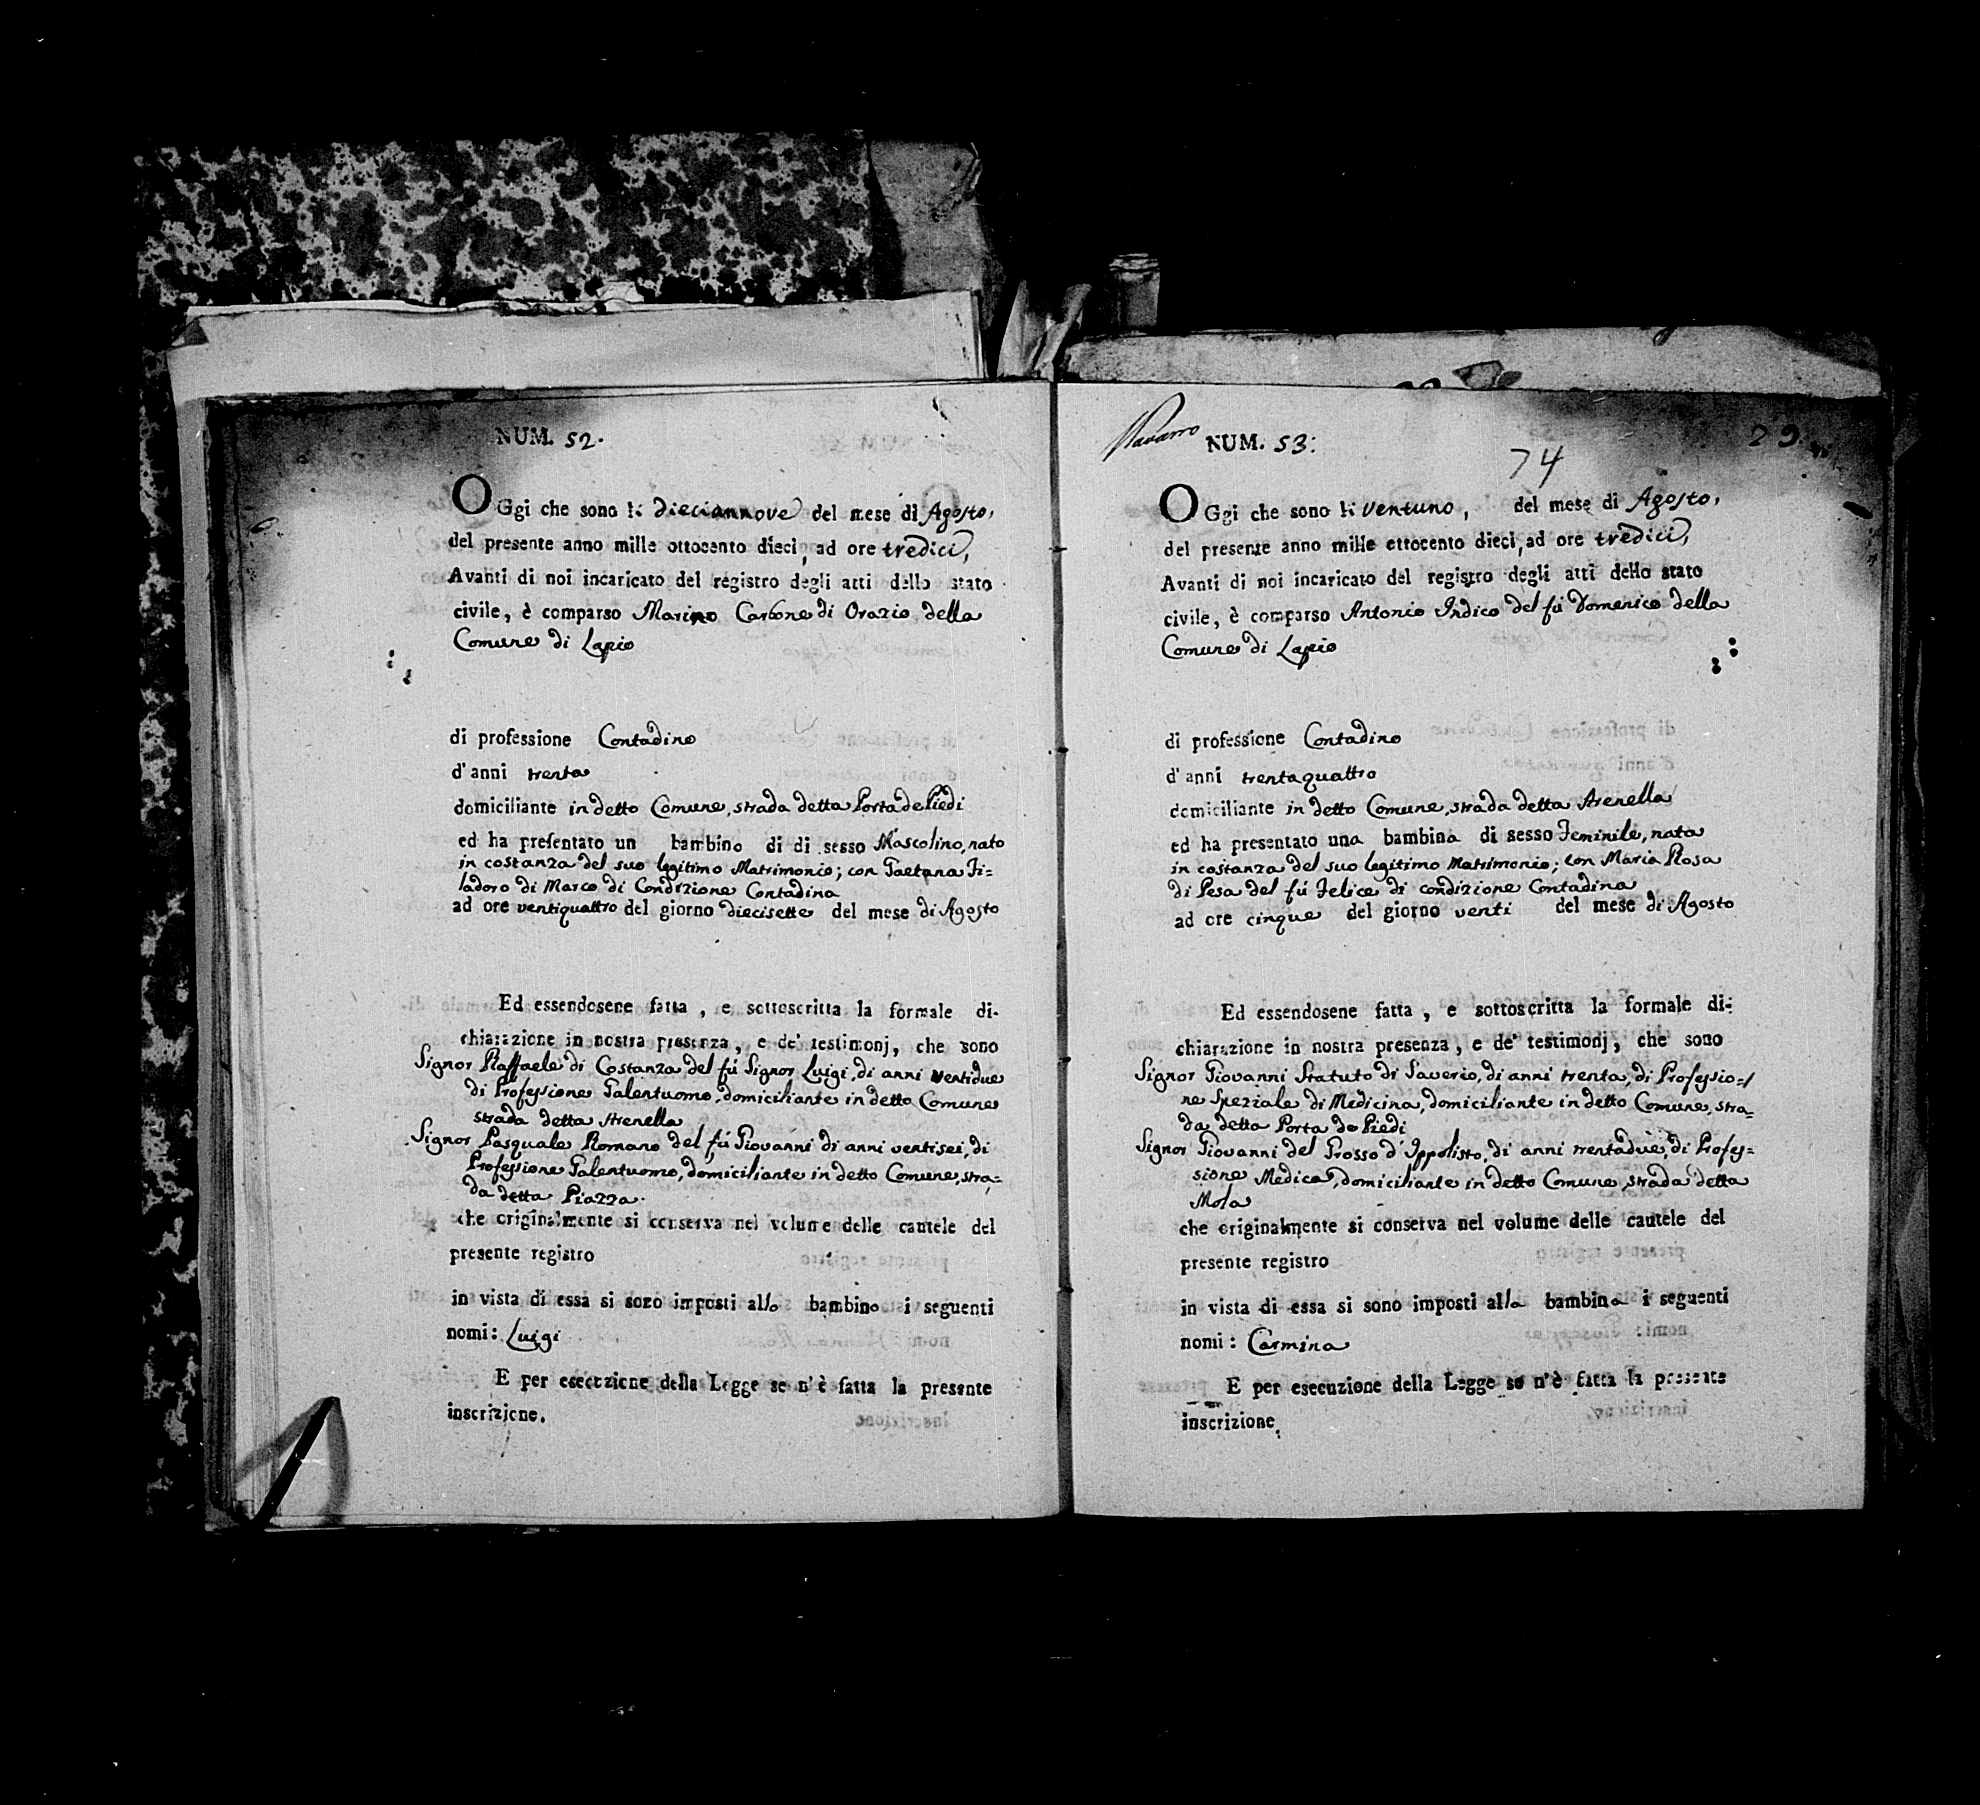 NUM. 52.
OGgi che sono li dieciannove del mese di Agosto,
del presente anno mille ottocento dieci, ad ore tredici,
Avanti di noi incaricato del registro degli atti dello stato
civile, è comparso Marino Carbone di Orazio della
Comune di Lapio
di professione Contadino
d'anni trenta
domiciliante in detto Comune, strada detta Porta de Piedi
ed ha presentato un bambino di di sesso Mascolino, nato
in costanza del suo legitimo Matrimonio; con Gaetana Fi=
ladoro di Marco di Condizione Contadina
ad ore ventiquattro del giorno diecisette del mese di Agosto
Ed essendosene fatta, e sottoscritta la formale di-
chiarazione in nostra presenza, e de' testimonj, che sono
Signor Raffaele di Costanza del fú Signor Luigi, di anni ventidue
di Professione Galentuomo, domiciliante in detto Comune
strada detta Arenella
Signor Pasquale Romano del fú Giovanni di anni ventisei, di
Professione Galentuomo, domiciliante in detto Comune, stra=
da detta Piazza.
che originalmente si conserva nel volume delle cautele del
presente registro
in vista di essa si sono imposti allo bambino i seguenti
nomi: Luigi
E per esecuzione della Legge se n'è fatta la presente
inscrizione.
Navarro
NUM. 53:
74
29
OGgi che sono li ventuno, del mese di Agosto,
del presente anno mille ottocento dieci, ad ore tredici,
Avanti di noi incaricato del registro degli atti dello stato
civile, è comparso Antonio Indico del fú Domenico della
Comune di Lapio
di professione Contadino
d'anni trentaquattro
domiciliante in detto Comune, strada detta Arenella
ed ha presentato una bambina di sesso Feminile, nata
in costanza del suo legitimo Matrimonio; con Maria Rosa
di Pesa del fú Felice di condizione Contadina
ad ore cinque del giorno venti del mese di Agosto
Ed essendosene fatta, e sottoscritta la formale di-
chiarazione in nostra presenza, e de' testimonj, che sono
Signor Giovanni Statuto di Saverio, di anni trenta, di Professio=
ne Speziale di Medicina, domiciliante in detto Comune, stra=
da detta Porta de Piedi
Signor Giovanni del Grosso d'Ippolisto, di anni trentadue, di Profes=
sione Medica, domiciliante in detto Comune, strada detta
Mola
che originalmente si conserva nel volume delle cautele del
presente registro
in vista di essa si sono imposti alla bambina i seguenti
nomi: Carmina
E per esecuzione della Legge se n'è fatta la presente
inscrizione.